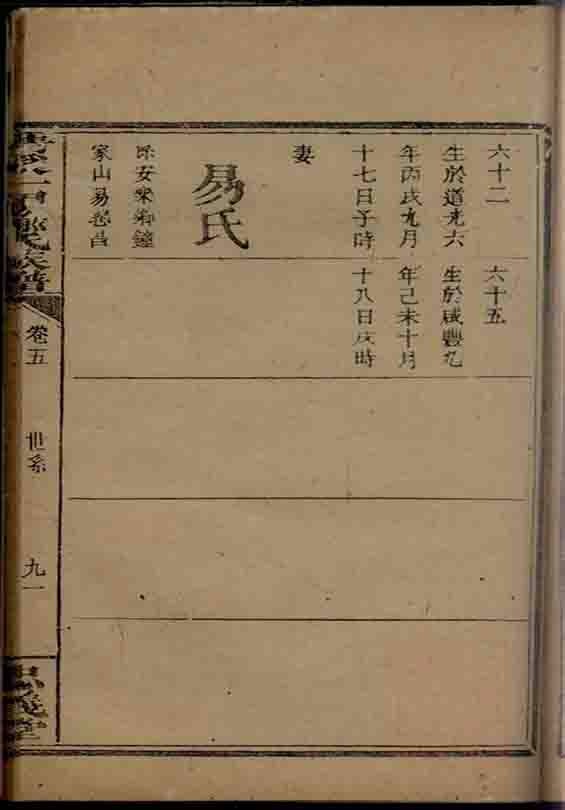 六十二
生於道光六
年丙戌九月
十七日子時
妻
易氏
係安樂鄉鐘
家山易
六十五
生於咸豐九
年己未十月
十八日戌時
氏族譜
卷五
世系
九一
忠義堂